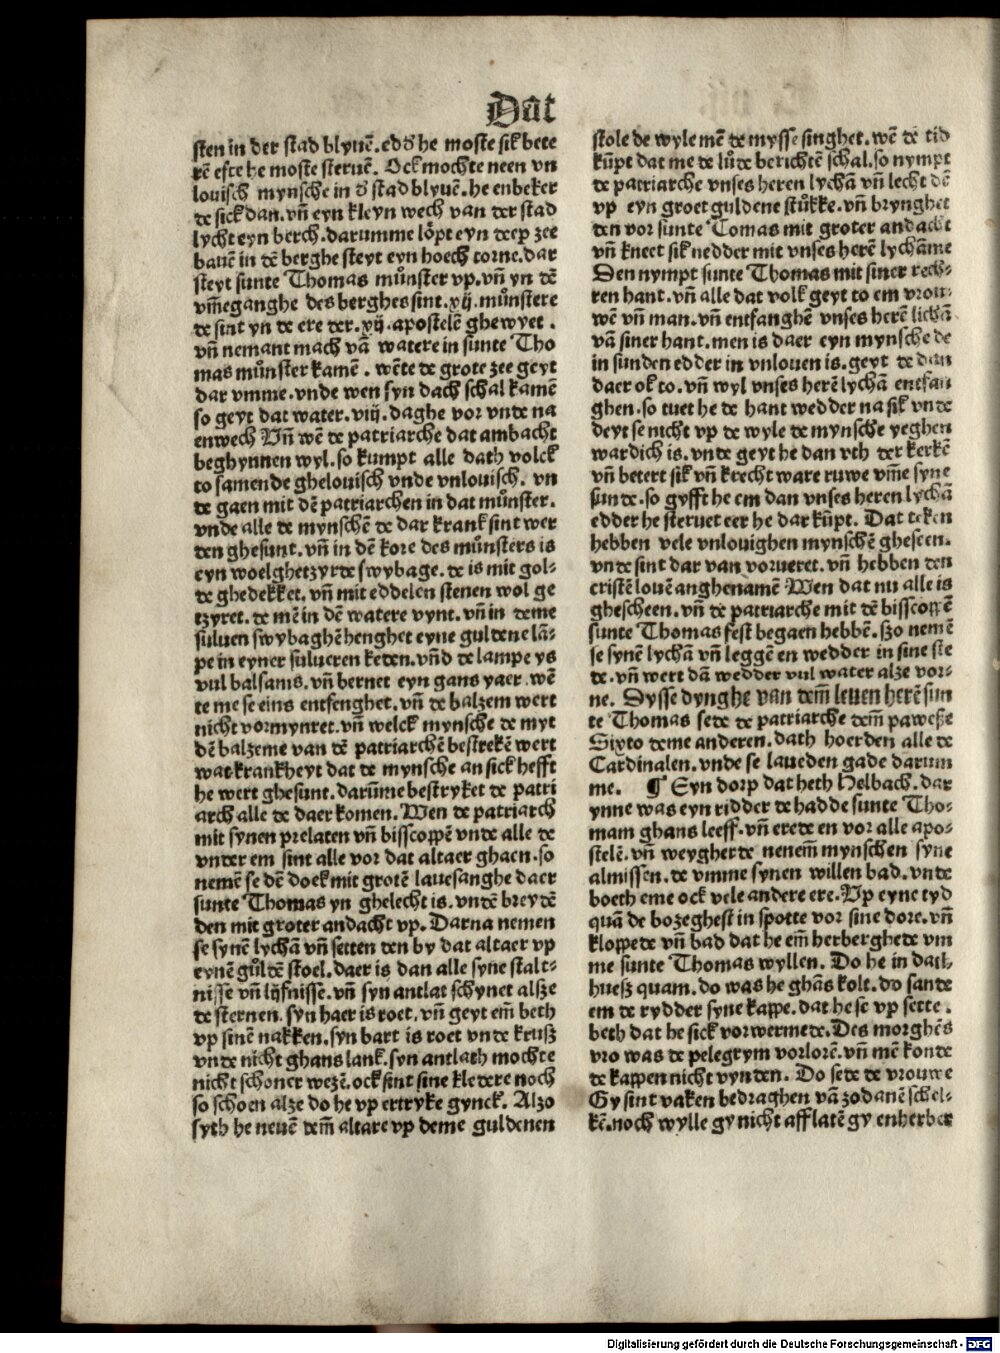 Dat
sten in der stad blyuē. edd̕ he moste sik bete
rē efte he moste steruē. Ock mochte neen vn
louisch mynsche in d̕ stad blyuē. he enbeker
de sick dan. vn̄ eyn kleyn wech van der stad
lycht eyn berch. darumme lo̊pt eyn deep zee
bauē in dē berghe steyt eyn hoech torne. dar
steyt sunte Thomas můnster vp. vn̄ yn dē
vm̄eganghe des berghes sint. xij. můnstere
de sint yn de ere der. xij. apostelē ghewyet.
vn̄ nemant mach vā watere in sunte Tho
mas můnster kamē. wēte de grote zee geyt
dar vmme. vnde wen syn dach schal kamē
so geyt dat water. viij. daghe vor vnde na
enwech Vn̄ wē de patriarche dat ambacht
beghynnen wyl. so kumpt alle dath volck
to samende ghelouisch vnde vnlouisch. vn
de gaen mit dē patriarchen in dat můnster.
vnde alle de mynschē de dar krank sint wer
den ghesunt. vn̄ in dē kore des můnsters is
eyn woelghetzyrde swybage. de is mit gol⸗
de ghedekket. vn̄ mit eddelen stenen wol ge
tzyret. de mē in dē watere vynt. vn̄ in deme
suluen swybaghē henghet eyne guldene lā⸗
pe in eyner sulueren keden. vn̄d de lampe ys
vul balsams. vn̄ bernet eyn gans yaer. wē
te me se eins entfenghet. vn̄ de balzem wert
nicht vormynret. vn̄ welck mynsche de myt
dē balzeme van dē patriarchē bestrekē wert
wat krankheyt dat de mynsche an sick hefft
he wert ghesunt. darūme bestryket de patri
arch alle de daer komen. Wen de patriarch
mit synen prelaten vn̄ bisscoppē vnde alle de
vnder em sint alle vor dat altaer ghaen. so
nemē se dē doek mit grotē lauesanghe daer
sunte Thomas yn ghelecht is. vndē breydē
den mit groter andacht vp. Darna nemen
se synē lychā vn̄ setten den by dat altaer vp
eynē gůldē stoel. daer is dan alle syne stalt⸗
nisse vn̄ lijfnisse. vn̄ syn antlat schynet alsze
de sternen. syn haer is roet. vn̄ geyt em̄ beth
vp sinē nakken. syn bart is roet vnde krusz
vnde nicht ghans lank. syn antlath mochte
nicht schoner wezē. ock sint sine kledere noch
so schoen alze do he vp ertryke gynck. Alzo
syth he neuē dem̄ altare vp deme guldenen
stole de wyle mē de mysse singhet. wē dē tid
kūpt dat me de lůde berichtē schal. so nympt
de patriarche vnses heren lychā vn̄ lecht dē
vp eyn groet guldene stůkke. vn̄ brynghet
den vor sunte Tomas mit groter andacht
vn̄ kneet sik nedder mit vnses herē lychāme
Den nympt sunte Thomas mit siner rech⸗
ren hant. vn̄ alle dat volk geyt to em vrou⸗
wē vn̄ man. vn̄ entfanghē vnses herē lichā
vā siner hant. men is daer eyn mynsche de
in sunden edder in vnlouen is. geyt de dan
daer ok to. vn̄ wyl vnses herē lychā entfan
ghen. so tuet he de hant wedder na sik vnde
deyt se nicht vp de wyle de mynsche yeghen
wardich is. vnde geyt he dan vth der kerkē
vn̄ betert sik vn̄ krecht ware ruwe vm̄e syne
sunde. so gyfft he em dan vnses heren lychā
edder he steruet eer he dar kūpt. Dat teken
hebben vele vnlouighen mynschē gheseen.
vnde sint dar van vorueret. vn̄ hebben den
cristē louē anghenamē Wen dat nu alle is
ghescheen. vn̄ de patriarche mit dē bisscoppē
sunte Thomas fest begaen hebbē. szo nemē
se synē lychā vn̄ leggē en wedder in sine ste
de. vn̄ wert dā wedder vul water alze vor⸗
ne. Dysse dynghe van dem̄ leuen herē sun
te Thomas sede de patriarche dem̄ pawesze
Sixto deme anderen. dath hoerden alle de
Cardinalen. vnde se laueden gade darum
me. ¶ Eyn dorp dat heth Helbach. dar
ynne was eyn ridder de hadde sunte Tho⸗
mam ghans leeff. vn̄ erede en vor alle apo⸗
stelē. vn̄ weygherde nenem̄ mynschen syne
almissen. de vmme synen willen bad. vnde
boeth eme ock vele andere ere. Vp eyne tyd
quā de bozeghest in spotte vor sine dore. vn̄
kloppede vn̄ bad dat he em̄ herberghede vm
me sunte Thomas wyllen. Do he in dath
huesz quam. do was he ghās kolt. do sande
em de rydder syne kappe. dat he se vp sette.
beth dat he sick vorwermede. Des morghēs
vro was de pelegrym vorlorē. vn̄ mē konde
de kappen nicht vynden. Do sede de vrouwe
Gy sint vaken bedraghen vā zodanē schel⸗
kē. noch wylle gy nicht afflatē gy enherber
Digitalisierung gefördert durch die Deutsche Forschungsgemeinschaft - DFG